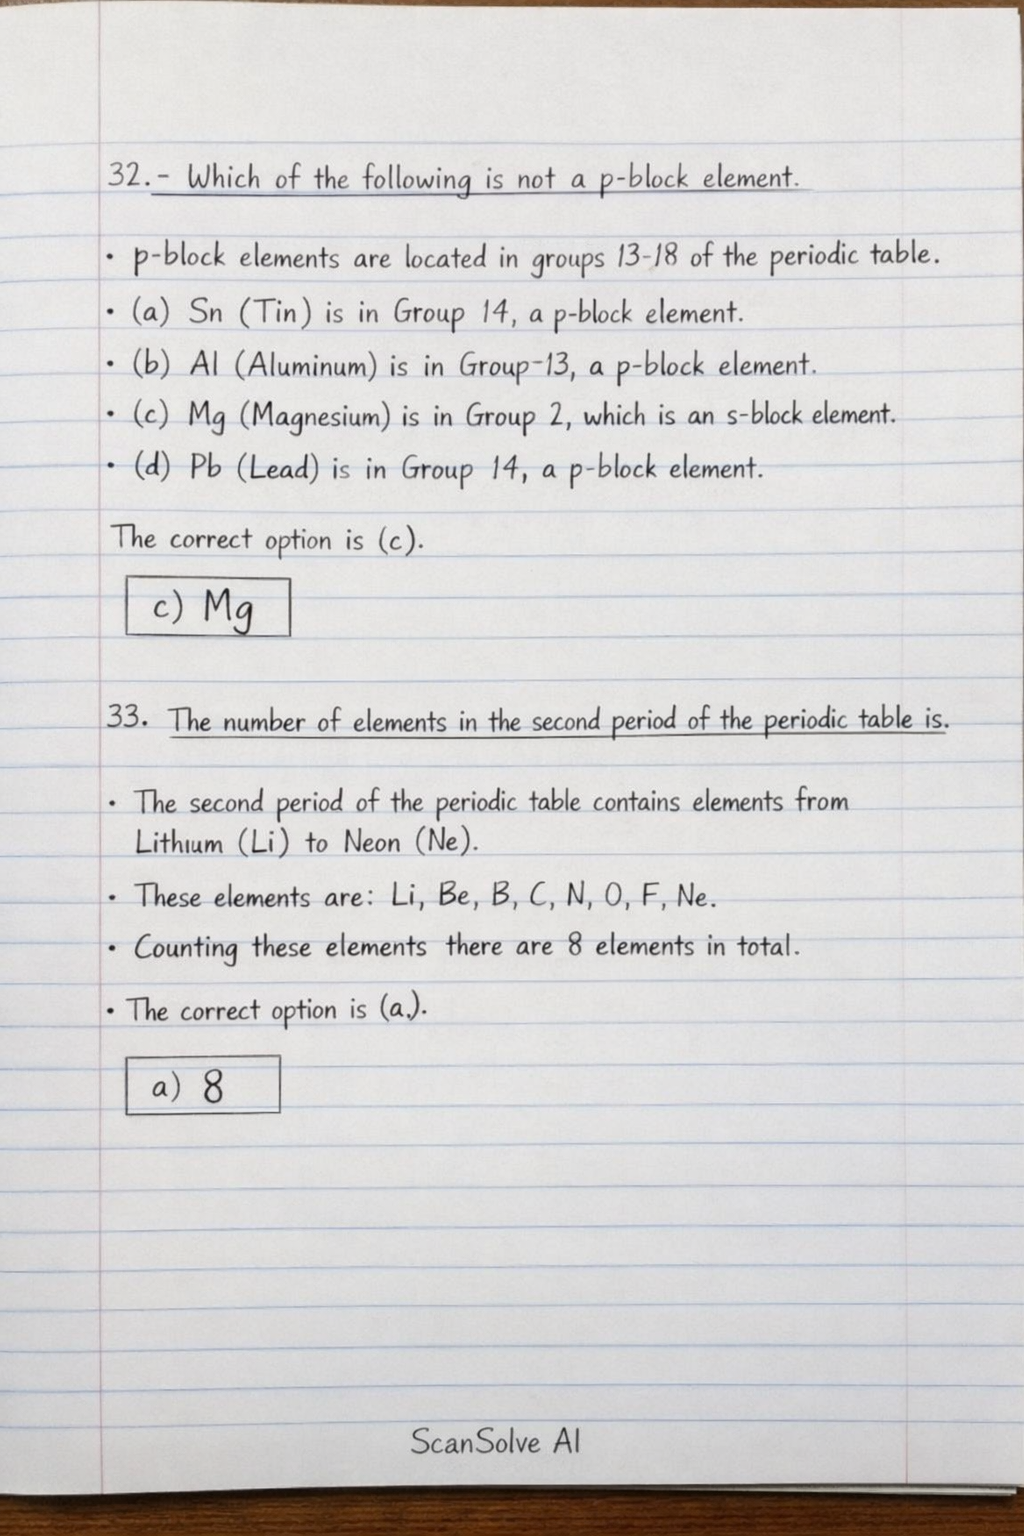 32.- Which of the following is not a p-block element.
• p-block elements are located in groups 13-18 of the periodic table.
• (a) Sn (Tin) is in Group 14, a p-block element.
• (b) Al (Aluminum) is in Group-13, a p-block element.
• (c) Mg (Magnesium) is in Group 2, which is an s-block element.
• (d) Pb (Lead) is in Group 14, a p-block element.
The correct option is (c).
c) Mg
33. The number of elements in the second period of the periodic table is.
• The second period of the periodic table contains elements from
Lithium (Li) to Neon (Ne).
• These elements are: Li, Be, B, C, N, O, F, Ne.
• Counting these elements there are 8 elements in total.
• The correct option is (a.).
a) 8
ScanSolve AI